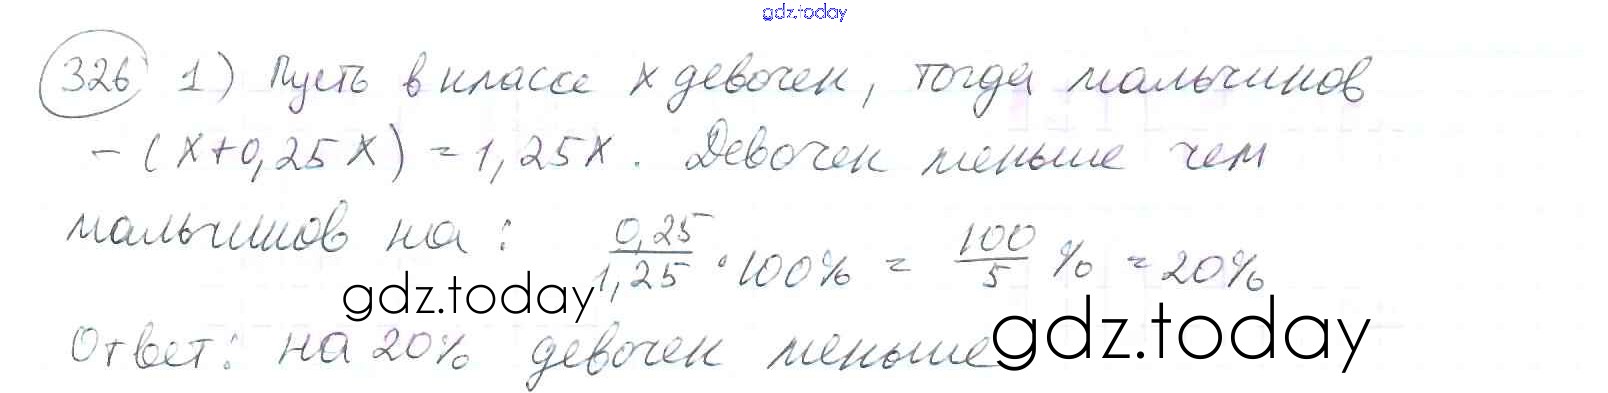 gdz.today
326 1) Пусть в классе x девочек, тогда мальчиков
- (x+0,25x) = 1,25x. Девочек меньше чем
мальчиков на: 0,25/1,25 · 100% = 100/5 % = 20%
gdz.today
Ответ: на 20% девочек меньше
gdz.today